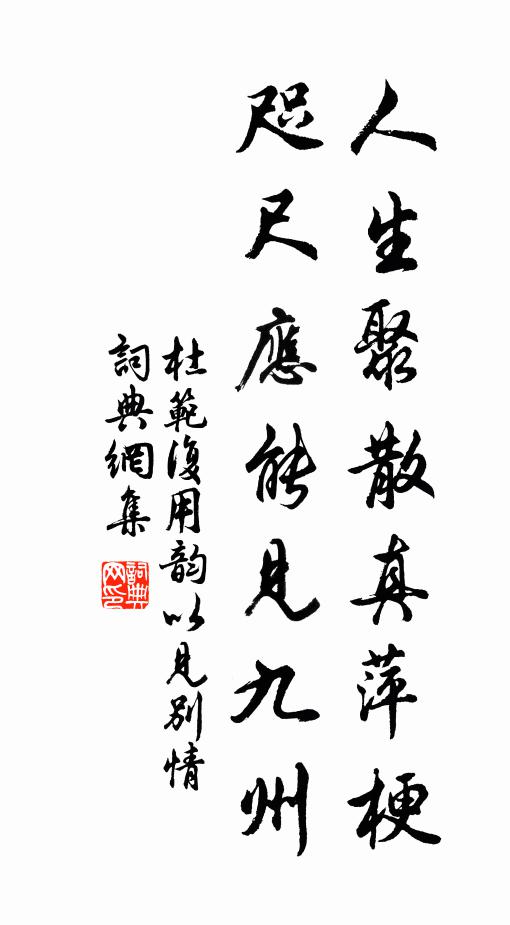 人生聚散真萍梗
咫尺應能見九州
杜範復用韵以見別情
詞典網集
詞典网印